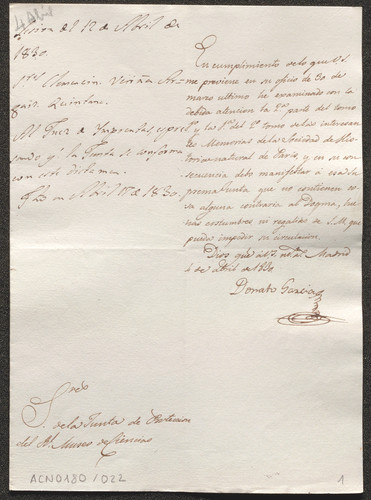 Sesion del 12 de Abril de
1830.
Sres. Clemencin Veriña Ar-
gaiz. Quintana.
Al Juez de Imprentas, expre-
sando qe. la Junta se conforma
con este dictamen.
Fho en Abril 17 de 1830.
En cumplimiento de lo que V.S.
me previene en su oficio de 30 de
marzo ultimo he examinado con la
debida atencion la 2ª parte del tomo
1º y la 1ª del 2º tomo de las interesan-
tes Memorias de la Sociedad de His-
toria natural de Paris y en su con-
secuencia debo manifestar á esa Su-
prema Junta que no contienen co-
sa alguna contraria al Dogma, bue-
nas costumbres ni regalías de S.M. que
pueda impedir su circulacion.
Dios gue. a V.S. ms. as. Madrid
6 de Abril de 1830.
Donato Garcia
Sres.
S. de la Junta de Proteccion
del Rl. Museo de Ciencias
ACN0180/022
1